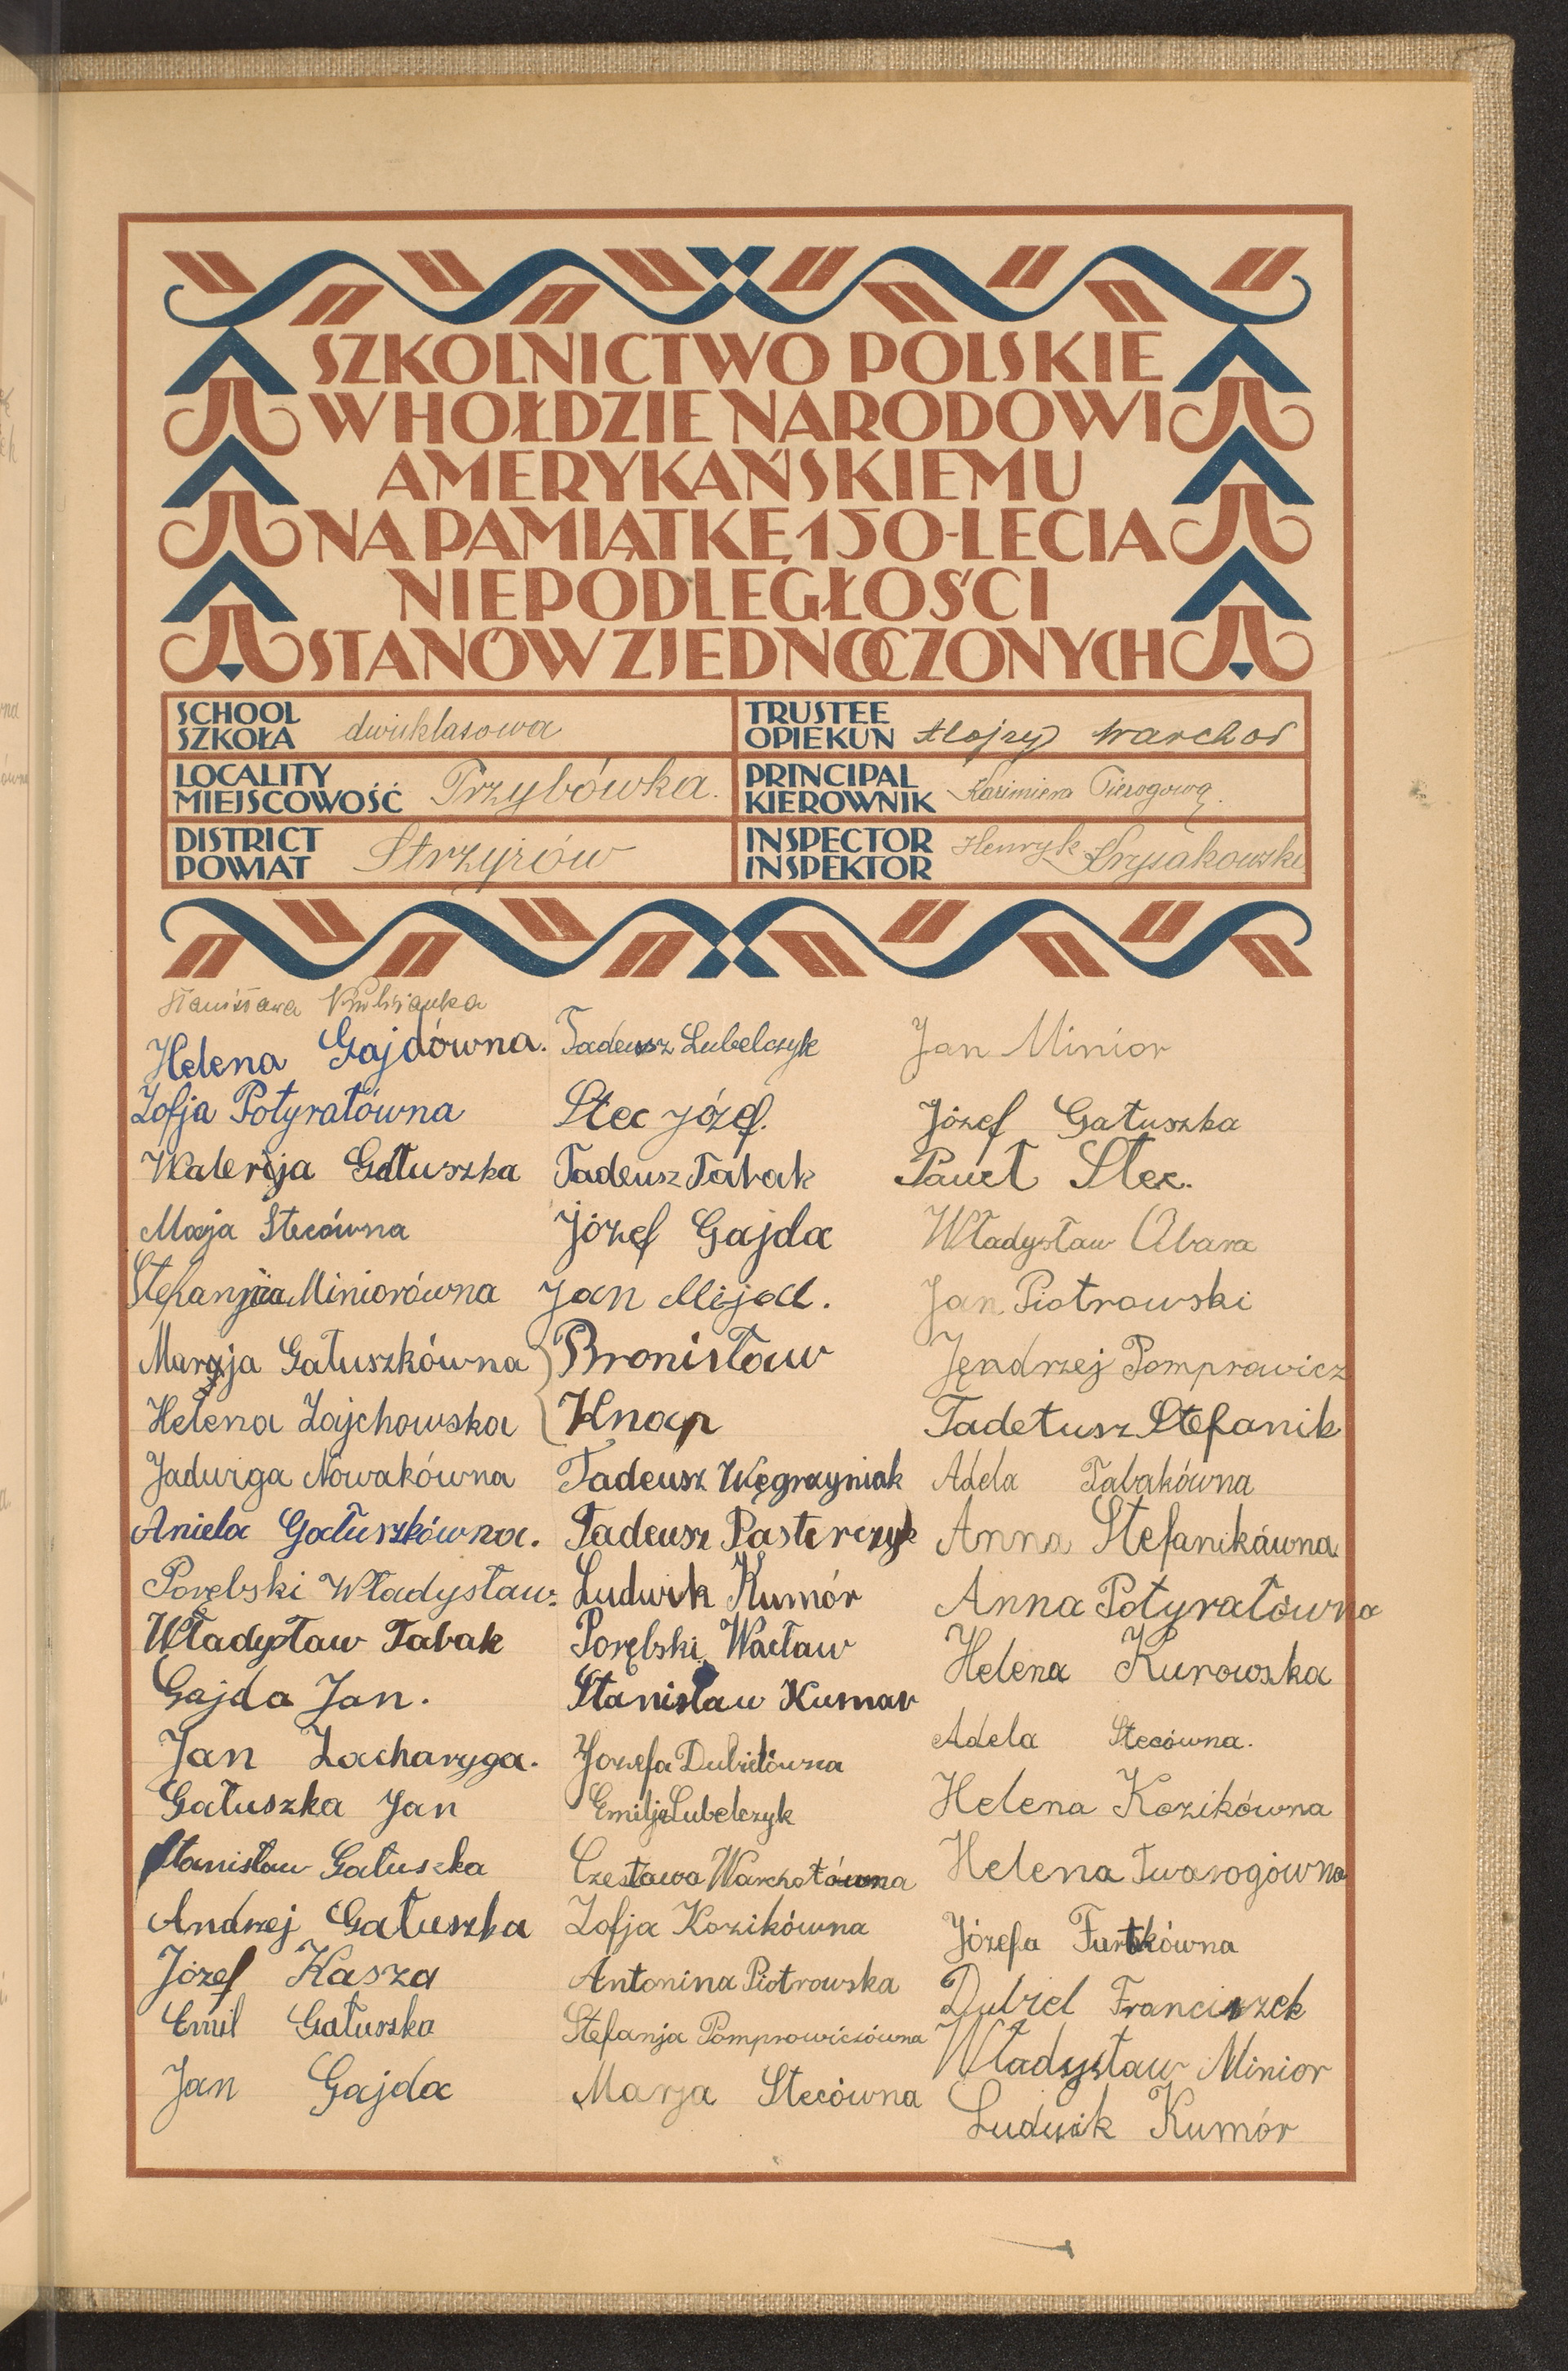 SZKOLNICTWO POLSKIE
W HOŁDZIE NARODOWI
AMERYKAŃSKIEMU
NA PAMIĄTKĘ 150-LECIA
NIEPODLEGŁOŚCI
STANÓW ZJEDNOCZONYCH
SCHOOL
SZKOŁA dwuklasowa
LOCALITY
MIEJSCOWOŚĆ Przybówka.
DISTRICT
POWIAT Strzyżów
TRUSTEE
OPIEKUN Alojzy Warchoł
PRINCIPAL
KIEROWNIK Kazimiera Pierogową.
INSPECTOR
INSPEKTOR Henryk
Stanisława
Helena Gajdówna.
Zofja Potyratówna
Walerja Gałuszka
Marja Stecówna
Stefanja Miniorówna
Marja Gałuszkówna
Helena Zajchowska
Jadwiga Nowakówna
Aniela Gałuszkówna.
Porębski Władysław.
Władysław Tabak
Gajda Jan.
Jan Zacharyga.
Gałuszka Jan
Stanisław Gałuszka
Andrzej Gałuszka
Józef Kasza
Emil Gałuszka
Jan Gajda
Tadeusz Lubelczyk
Stec Józef.
Tadeusz Tabak
Józef Gajda
Jan Mijal.
Bronisław
Knap
Tadeusz Węgrzyniak
Tadeusz Pasterczyk
Ludwik Kumór
Porębski Wacław
Stanisław Kumor
Jozefa Dubielówna
Emilja Lubelczyk
Czesława Warchołówna
Zofja Kozikówna
Antonina Piotrowska
Stefanja Pomprowiczówna
Marja Stecówna
Jan Minior
Józef Gałuszka
Paweł Stec.
Władysław Abara
Jan Piotrowski
Jędrzej Pomprowicz
Tadetusz Stefanik
Adela Tabakówna
Anna Stefanikówna
Anna Potyratówna
Helena Kurowska
Adela Stecówna.
Helena Kozikówna
Helena Twarogówna
Józefa Furtkówna
Dubiel Franciszek
Władysław Minior
Ludwik Kumór